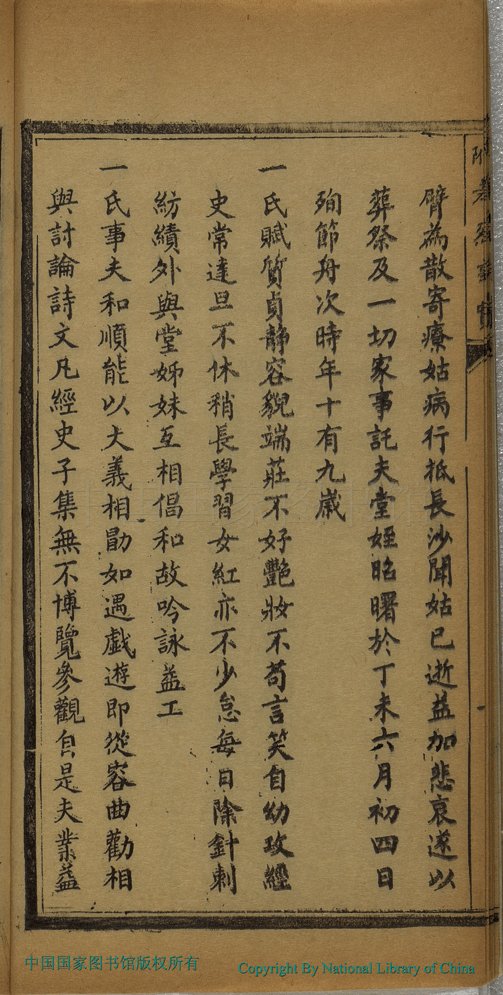 臂為散寄療姑病行抵長沙聞姑已逝益加悲哀遂以
葬祭及一切家事託夫堂姪昭曙於丁未六月初四日
殉節舟次時年十有九歲
一氏賦質貞靜容貌端莊不好艷妝不苟言笑自幼攻經
史常達旦不休稍長學習女紅亦不少怠每日除針刺
紡績外與堂姊妹互相倡和故吟詠益工
一氏事夫和順能以大義相勖如遇戲遊即從容曲勸相
與討論詩文凡經史子集無不博覽參觀自是夫業益
中国国家图书馆版权所有
Copyright By National Library of China